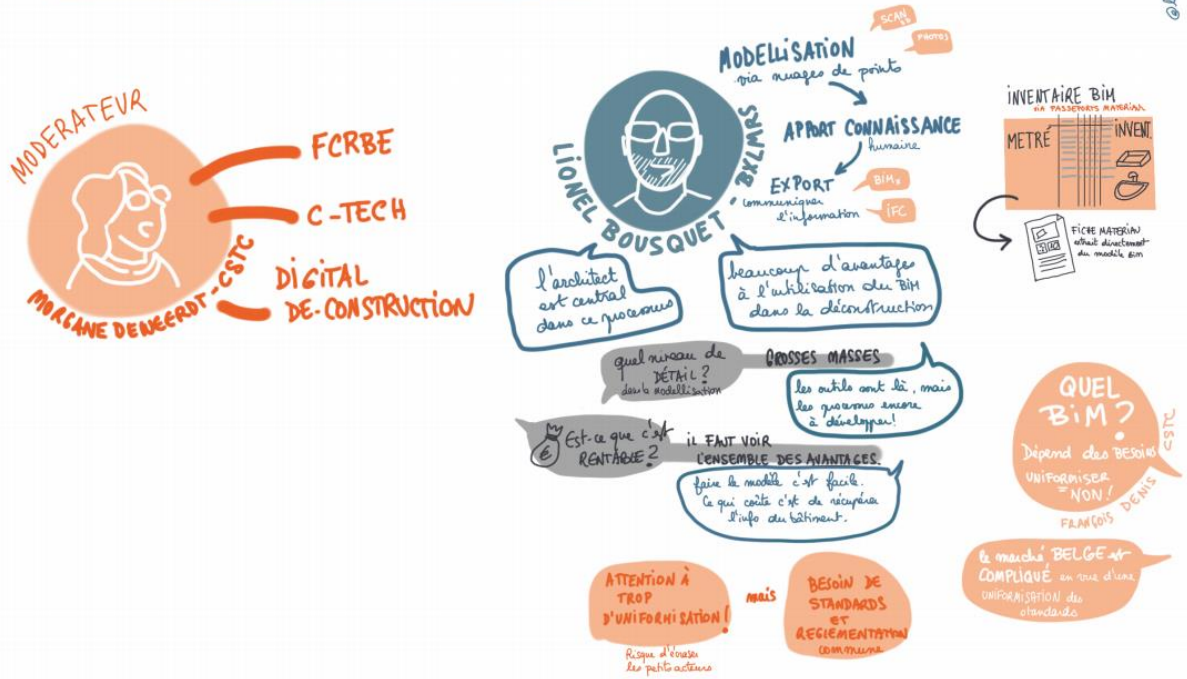 MODERATEUR
MORGANE DENEERDT - CSTC
FCRBE
C-TECH
DIGITAL
DE-CONSTRUCTION
LIONEL BOUSQUET - BXLMRS
MODELLISATION
via nuages de points
SCAN
3D
PHOTOS
APPORT CONNAISSANCE
humaine
EXPORT
communiquer
l'information
BIMx
IFC
INVENTAIRE BIM
VIA PASSEPORTS MATERIAU
METRÉ
INVENT.
FICHE MATERIAU
extrait directement
du modèle Bim
l'architect
est central
dans ce processus
beaucoup d'avantages
à l'utilisation du BIM
dans la déconstruction
quel niveau de
DÉTAIL?
dans la modellisation
GROSSES MASSES
les outils sont là, mais
les processus encore
à développer!
Est-ce que c'est
RENTABLE?
€
IL FAUT VOIR
L'ENSEMBLE DES AVANTAGES.
faire le modèle c'est facile.
Ce qui coûte c'est de récupérer
l'info du bâtiment.
QUEL
BIM?
Dépend des BESOINS
UNIFORMISER
= NON!
FRANÇOIS DENIS CSTC
le marché BELGE est
COMPLIQUÉ en vue d'une
UNIFORMISATION des
standards
ATTENTION À
TROP
D'UNIFORMISATION!
Risque d'écraser
les petits acteurs
mais
BESOIN DE
STANDARDS
ET
REGLEMENTATION
commune